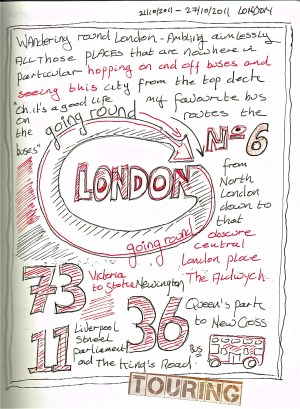 21/10/2011 – 27/10/2011 LONDON
Wandering round London – Ambling aimlessly
All those PLACES that are nowhere in
particular hopping on and off buses and
seeing this city from the top deck
"Oh, it's a good life
on
the
buses"
going round
my favourite bus
routes the
Nº 6
LONDON
from
North
London
down to
that
obscure
central
London place
The Aldwych.
going round
73
Victoria
to Stoke Newington
11
Liverpool
Street
parliament
and The King's Road
36
Queen's park
to New Cross
BUS
TOURING